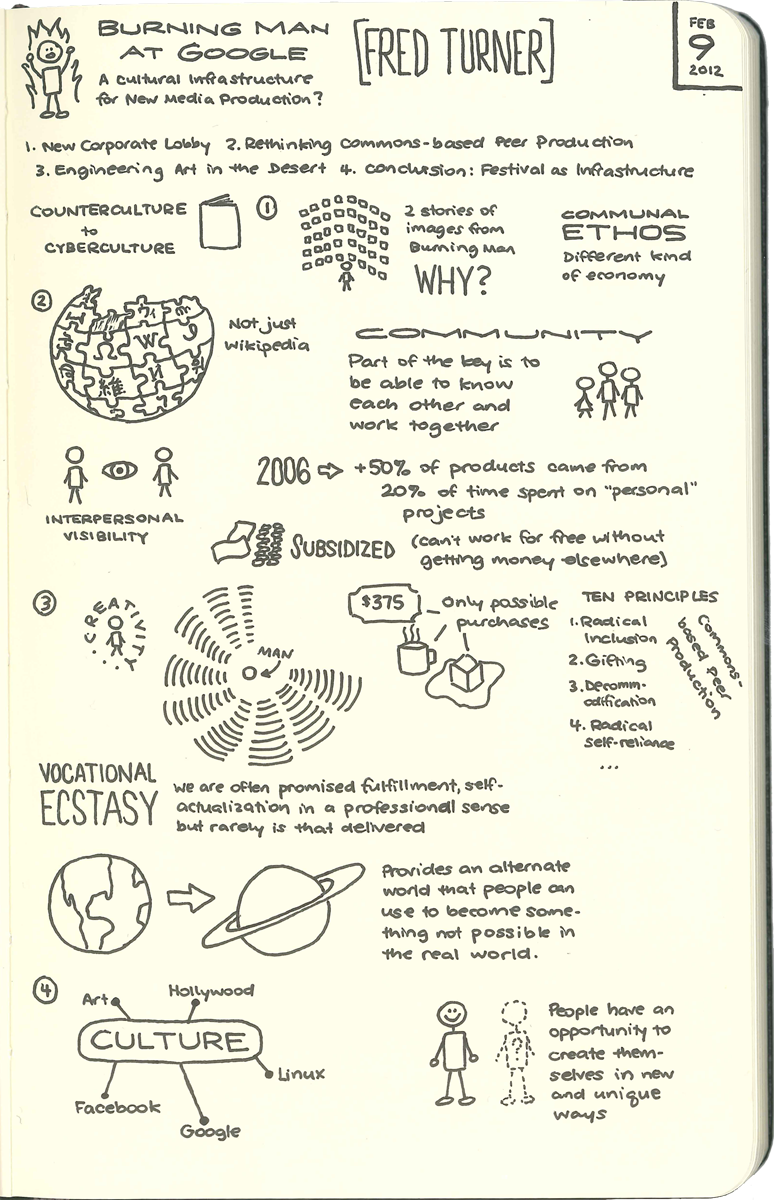 BURNING MAN
AT GOOGLE
A Cultural Infrastructure
for New Media Production?
[FRED TURNER]
FEB
9
2012
1. New Corporate Lobby 2. Rethinking Commons-based Peer Production
3. Engineering Art in the Desert 4. Conclusion: Festival as Infrastructure
COUNTERCULTURE
to
CYBERCULTURE
1
2 stories of
images from
Burning Man
WHY?
COMMUNAL
ETHOS
Different kind
of economy
2
Ω
W
И
維
Not just
Wikipedia
COMMUNITY
Part of the key is to
be able to know
each other and
work together
INTERPERSONAL
VISIBILITY
2006 ⇨ +50% of products came from
20% of time spent on "personal"
projects
SUBSIDIZED (can't work for free without
getting money elsewhere)
3
CREATIVITY...
MAN
$375
Only possible
purchases
TEN PRINCIPLES
1. Radical
Inclusion
2. Gifting
3. Decomm-
odification
4. Radical
self-reliance
...
Commons-
based Peer
Production
VOCATIONAL
ECSTASY
We are often promised fulfillment, self-
actualization in a professional sense
but rarely is that delivered
Provides an alternate
world that people can
use to become some-
thing not possible in
the real world.
4
Art
Hollywood
CULTURE
Linux
Facebook
Google
?
People have an
opportunity to
create them-
selves in new
and unique
ways